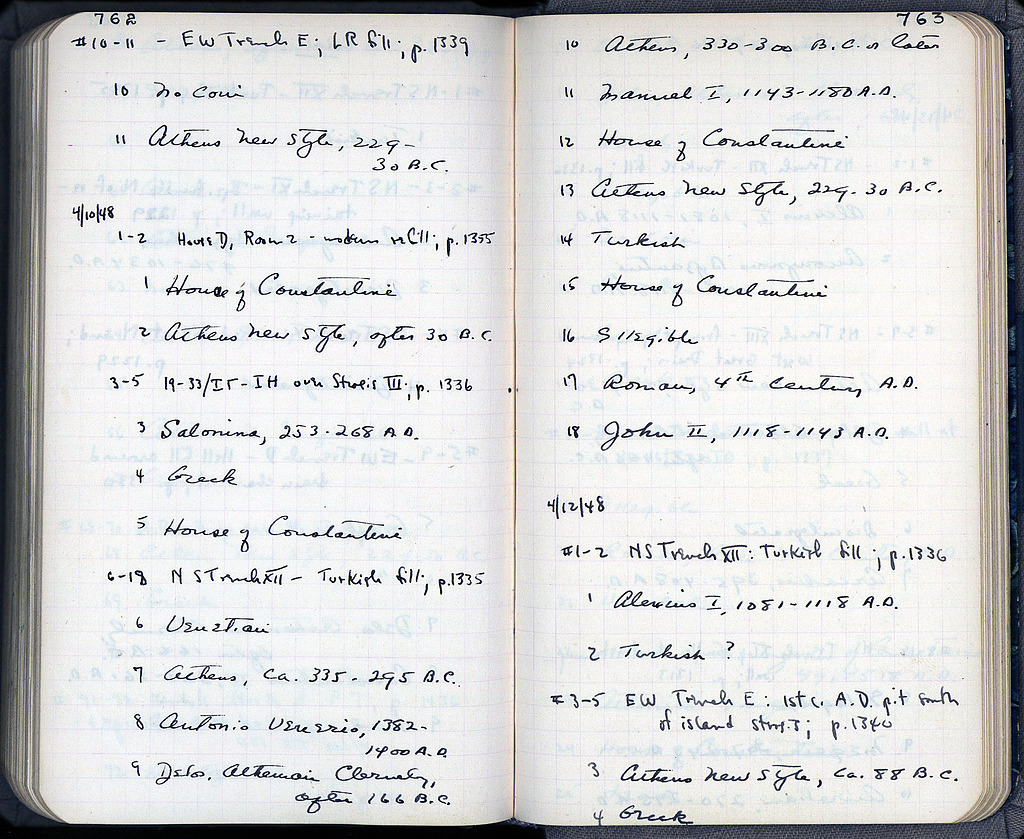 762
#10-11 - EW Trench E; LR fill; p. 1339
10 No Coin
11 Athens New Style, 229-
30 B.C.
4/10/48
1-2 House D, Room 2 - modern refill; p. 1355
1 House of Constantine
2 Athens New Style, after 30 B.C.
3-5 19-33/ΙΓ-ΙΗ over Strosis III, p. 1336
3 Salonina, 253-268 A.D.
4 Greek
5 House of Constantine
6-18 NS Trench XII - Turkish fill; p. 1335
6 Venetian
7 Athens, ca. 335-295 B.C.
8 Antonio Venerio, 1382-
1400 A.D.
9 Delos, Athenian Cleruchy,
after 166 B.C.
763
10 Athens, 330-300 B.C. or later
11 Manuel I, 1143-1180 A.D.
12 House of Constantine
13 Athens New Style, 229-30 B.C.
14 Turkish
15 House of Constantine
16 Illegible
17 Roman, 4th Century A.D.
18 John II, 1118-1143 A.D.
4/12/48
#1-2 NS Trench XII: Turkish fill; p. 1336
1 Alexius I, 1081-1118 A.D.
2 Turkish?
#3-5 EW Trench E: 1st c. A.D. pit south
of island strosis; p. 1340
3 Athens New Style, ca. 88 B.C.
4 Greek